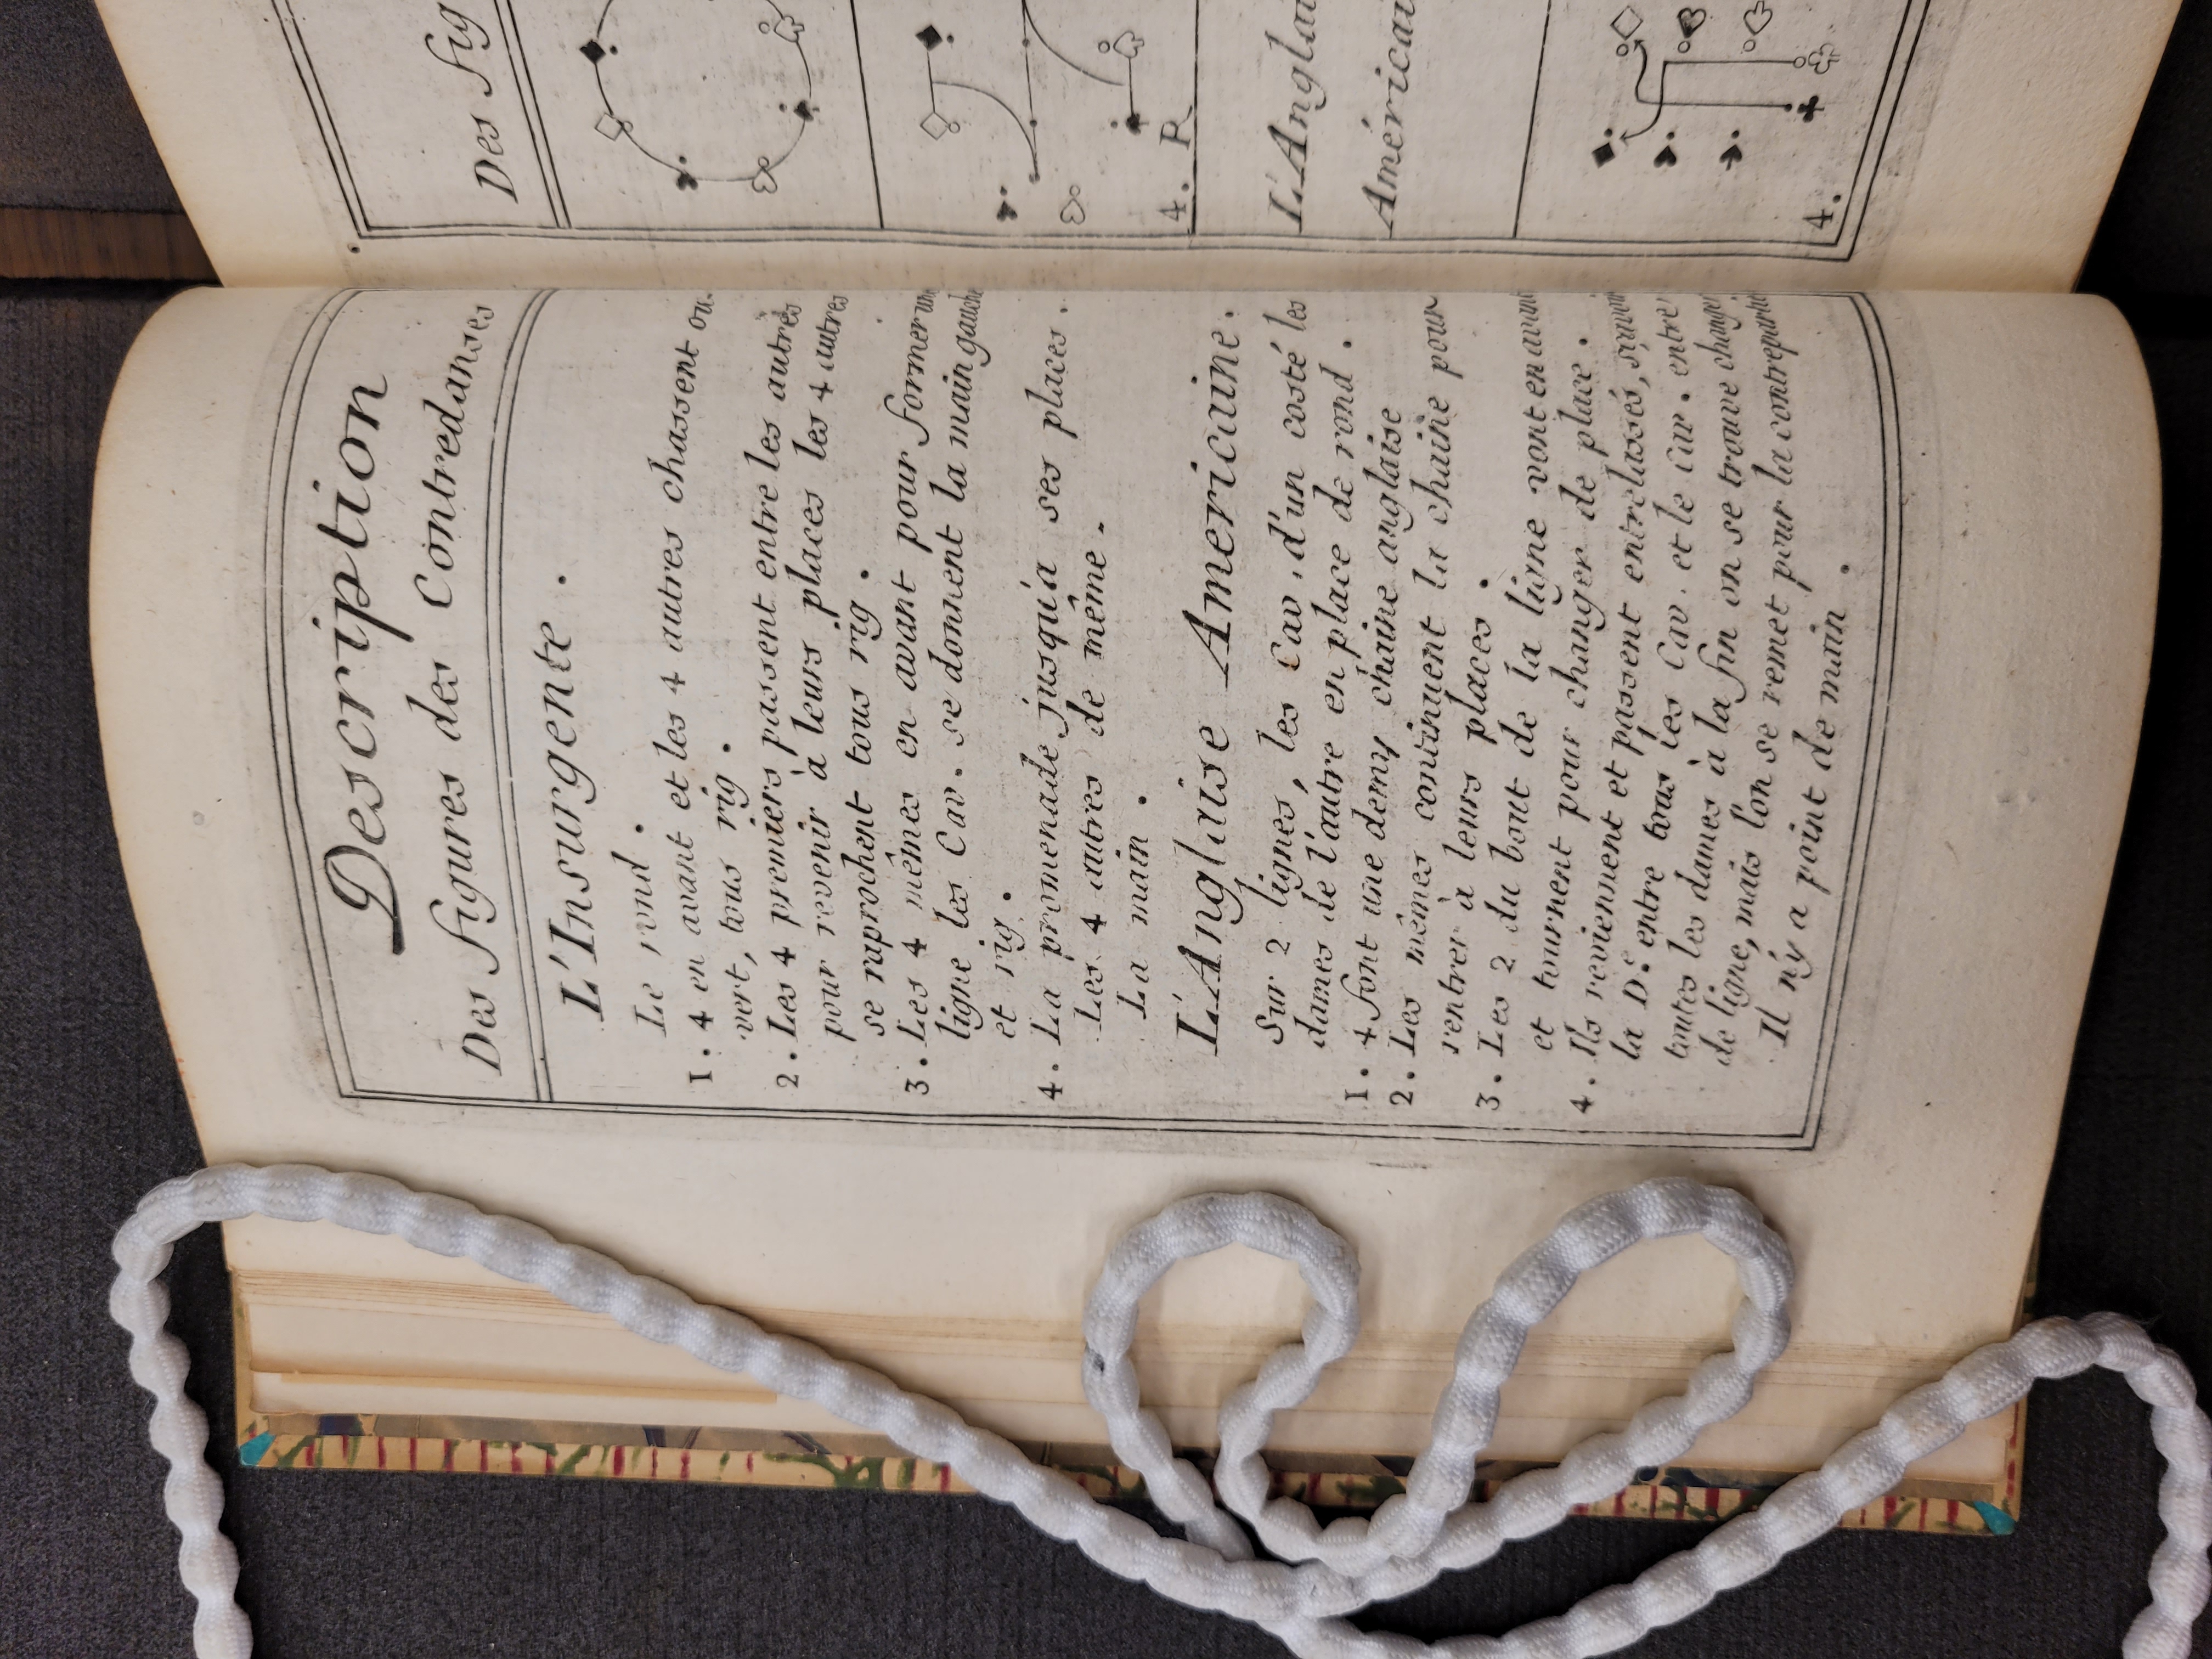 Description
Des Figures des Contredanses
L'Insurgente.
Le rond.
1. 4 en avant et les 4 autres chassent ou-
vert, tous rig.
2. Les 4 premiers passent entre les autres
pour revenir à leurs places les 4 autres
se raprochent tous rig.
3. Les 4 mêmes en avant pour former une
ligne les Cav. se donnent la main gauche
et rig.
4. La promenade jusqu'a ses places.
Les 4 autres de même.
La main.
L'Anglaise Americaine.
Sur 2 lignes, les Cav. d'un costé les
dames de l'autre en place de rond.
1. 4 font une demy chaine anglaise
2. Les mêmes continuent la chaine pour
rentrer à leurs places.
3. Les 2 du bout de la ligne vont en avant
et tournent pour changer de place.
4. Ils reviennent et passent entrelassés, savoir
la D.e entre tous les Cav. et le Cav. entre
toutes les dames à la fin on se trouve changé
de ligne, mais l'on se remet pour la contrepartie
Il n'y a point de main.
Des Fig
4. R
L'Anglai
Américai
4.